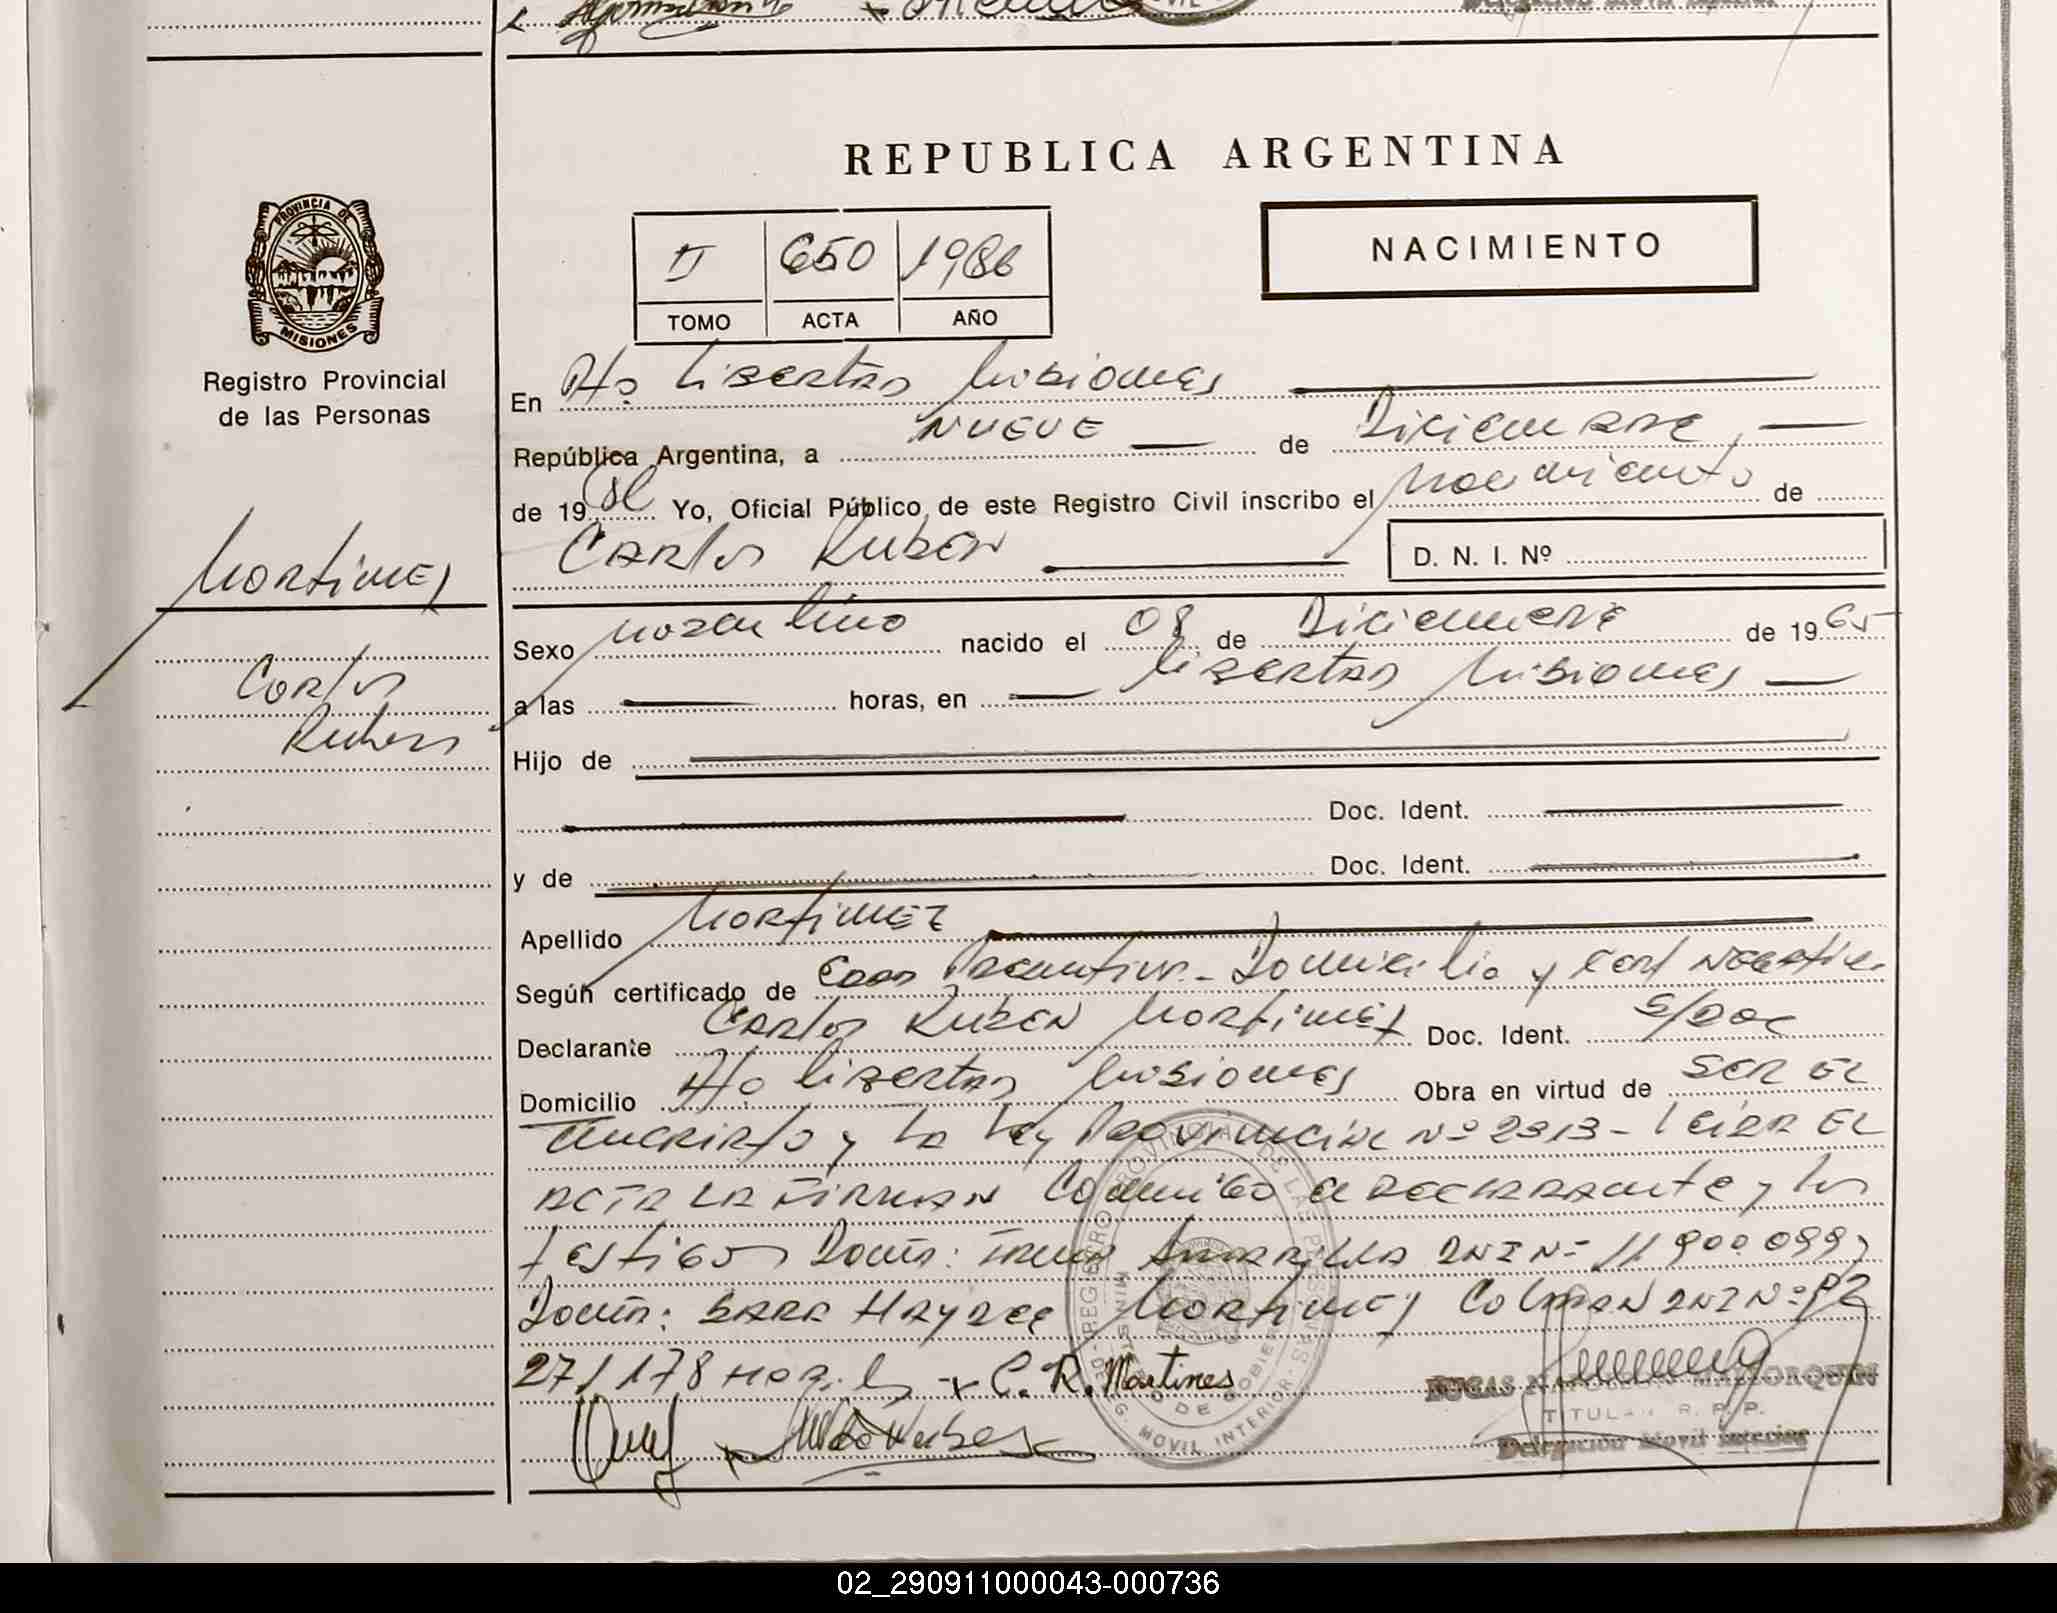 REPUBLICA ARGENTINA
NACIMIENTO
II 650 1986
TOMO ACTA AÑO
PROVINCIA DE
MISIONES
Registro Provincial
de las Personas
Martinez
Carlos
Ruben
En Pto Libertad Misiones
República Argentina, a NUEVE de Diciembre
de 1986 Yo, Oficial Público de este Registro Civil inscribo el nacimiento de
Carlos Ruben
D. N. I. Nº
Sexo masculino nacido el 08 de Diciembre de 1965
a las horas, en Libertad Misiones
Hijo de
Doc. Ident.
y de Doc. Ident.
Apellido Martinez
Según certificado de Edad Presuntiva - Domicilio y Cert Negativo
Declarante Carlos Ruben Martinez Doc. Ident. S/Doc
Domicilio Pto Libertad Misiones Obra en virtud de SER EL
inscripto y la Ley Provincial Nº 2313 - Leida EL
ACTA LA FIRMAN Conmigo el DECLARANTE y los
testigos Domic: Amarilla DNI Nº 11900099 y
Domic: SARA HAYDEE Martinez Colman DNI Nº 92
271178
x C. R. Martines
REGISTRO PROVINCIAL DE LAS PERSONAS
MINISTERIO DE GOBIERNO
DELEG. MOVIL INTERIOR
TITULAR R. P. P.
Delegacion Movil Interior
02_290911000043-000736